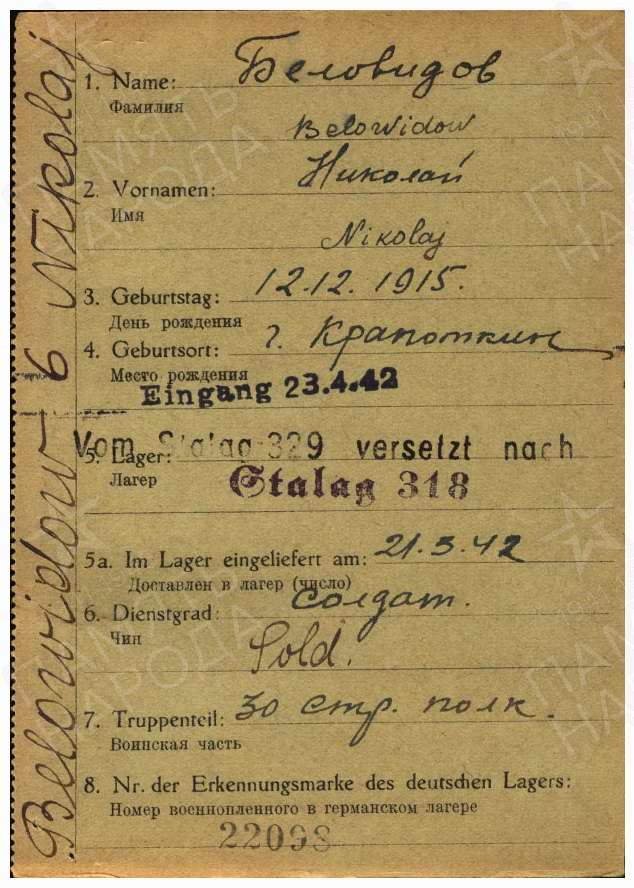 Belowidow 6 Nikolaj
1. Name: Беловидов
Фамилия
Belowidow
2. Vornamen: Николай
Имя
Nikolaj
3. Geburtstag: 12.12. 1915.
День рождения
4. Geburtsort: г. Крапоткин
Место рождения
Eingang 23.4.42
Vom Stalag 329 versetzt nach
5. Lager:
Лагер
Stalag 318
5a. Im Lager eingeliefert am: 21.3.42
Доставлен в лагер (число)
6. Dienstgrad: солдат.
Чин
Sold.
7. Truppenteil: 30 стр. полк.
Воинская часть
8. Nr. der Erkennungsmarke des deutschen Lagers:
Номер военнопленного в германском лагере
22098
ПАМЯТЬ
НАРОДА